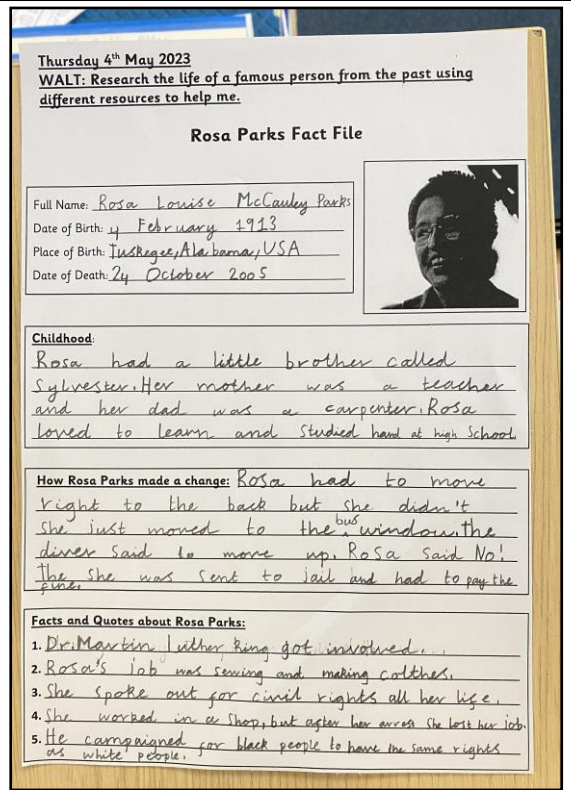 Thursday 4th May 2023
WALT: Research the life of a famous person from the past using
different resources to help me.
Rosa Parks Fact File
Full Name: Rosa Louise McCauley Parks
Date of Birth: 4 February 1913
Place of Birth: Tuskegee, Alabama, USA
Date of Death: 24 October 2005
Childhood:
Rosa had a little brother called
Sylvester. Her mother was a teacher
and her dad was a carpenter. Rosa
loved to learn and studied hard at high School.
How Rosa Parks made a change: Rosa had to move
right to the back but she didn't
she just moved to the bus window. The
diver said to move up. Rosa said No!
The she was sent to jail and had to pay the
fine.
Facts and Quotes about Rosa Parks:
1. Dr. Martin Luther King got involved...
2. Rosa's job was sewing and making colthes.
3. She spoke out for civil rights all her life.
4. She worked in a shop, but after her arrest she lost her job.
5. He campaigned for black people to have the same rights
as white people.